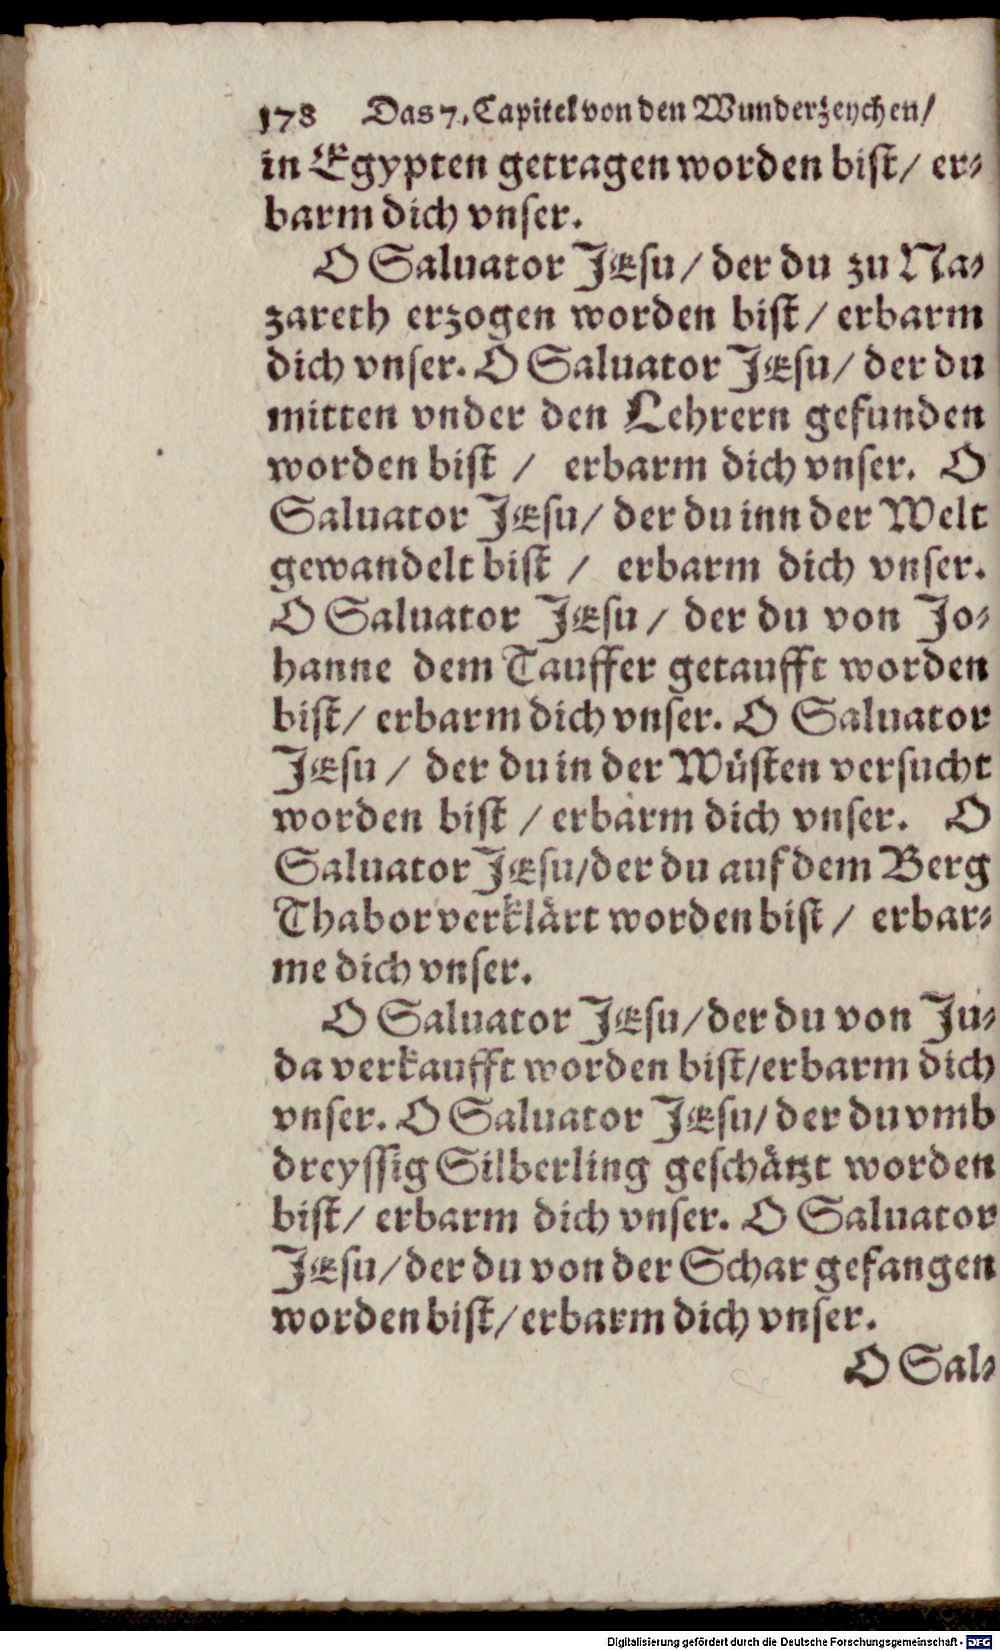 178 Das 7. Capitel von den Wunderzeychen/
in Egypten getragen worden bist/ er⸗
barm dich vnser.
O Saluator JEsu/ der du zu Na⸗
zareth erzogen worden bist/ erbarm
dich vnser. O Saluator JEsu/ der du
mitten vnder den Lehrern gefunden
worden bist / erbarm dich vnser. O
Saluator JEsu/ der du inn der Welt
gewandelt bist / erbarm dich vnser.
O Saluator JEsu / der du von Jo⸗
hanne dem Tauffer getaufft worden
bist/ erbarm dich vnser. O Saluator
JEsu / der du in der Wüsten versucht
worden bist / erbarm dich vnser. O
Saluator JEsu/der du auf dem Berg
Thabor verklärt worden bist / erbar⸗
me dich vnser.
O Saluator JEsu/der du von Ju⸗
da verkaufft worden bist/erbarm dich
vnser. O Saluator JEsu/ der du vmb
dreyssig Silberling geschätzt worden
bist/ erbarm dich vnser. O Saluator
JEsu/der du von der Schar gefangen
worden bist/erbarm dich vnser.
O Sal⸗
Digitalisierung gefördert durch die Deutsche Forschungsgemeinschaft - DFG